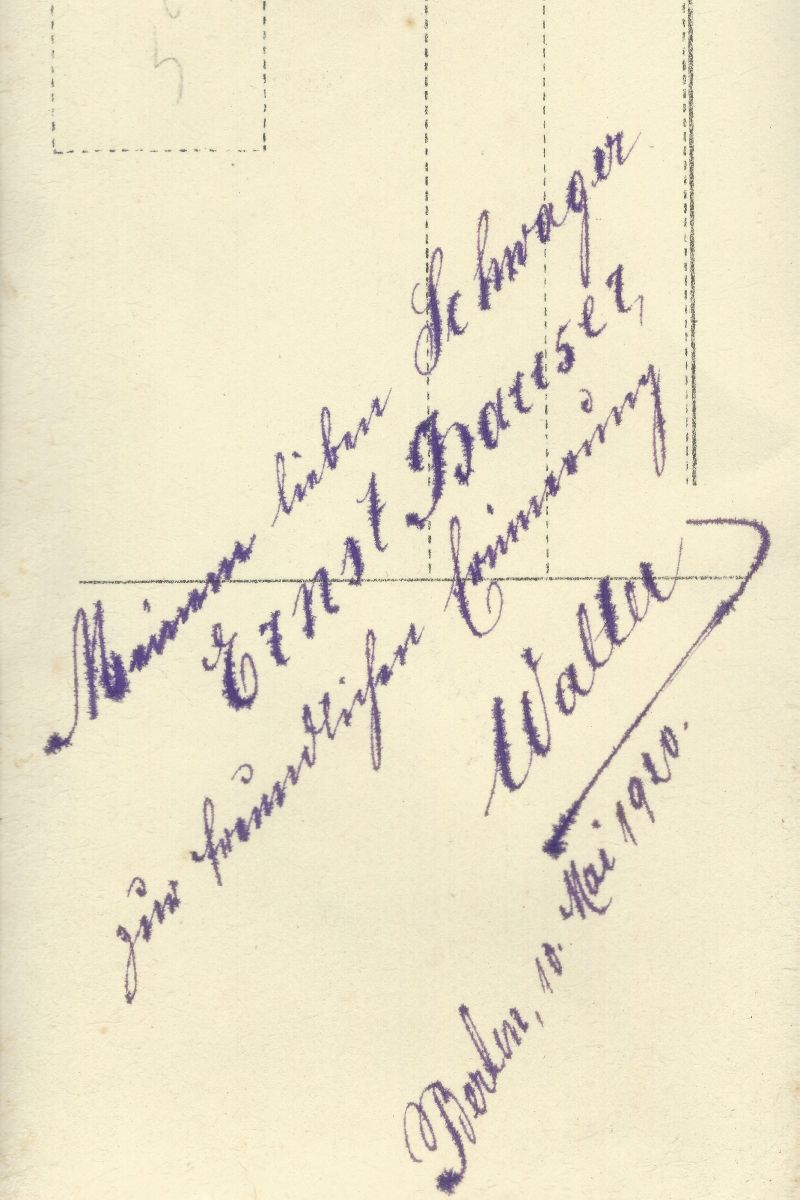 Meinem lieben Schwager
Ernst Hauser,
zur freundlichen Erinnerung
Walter
Berlin, 10. Mai 1920.
5